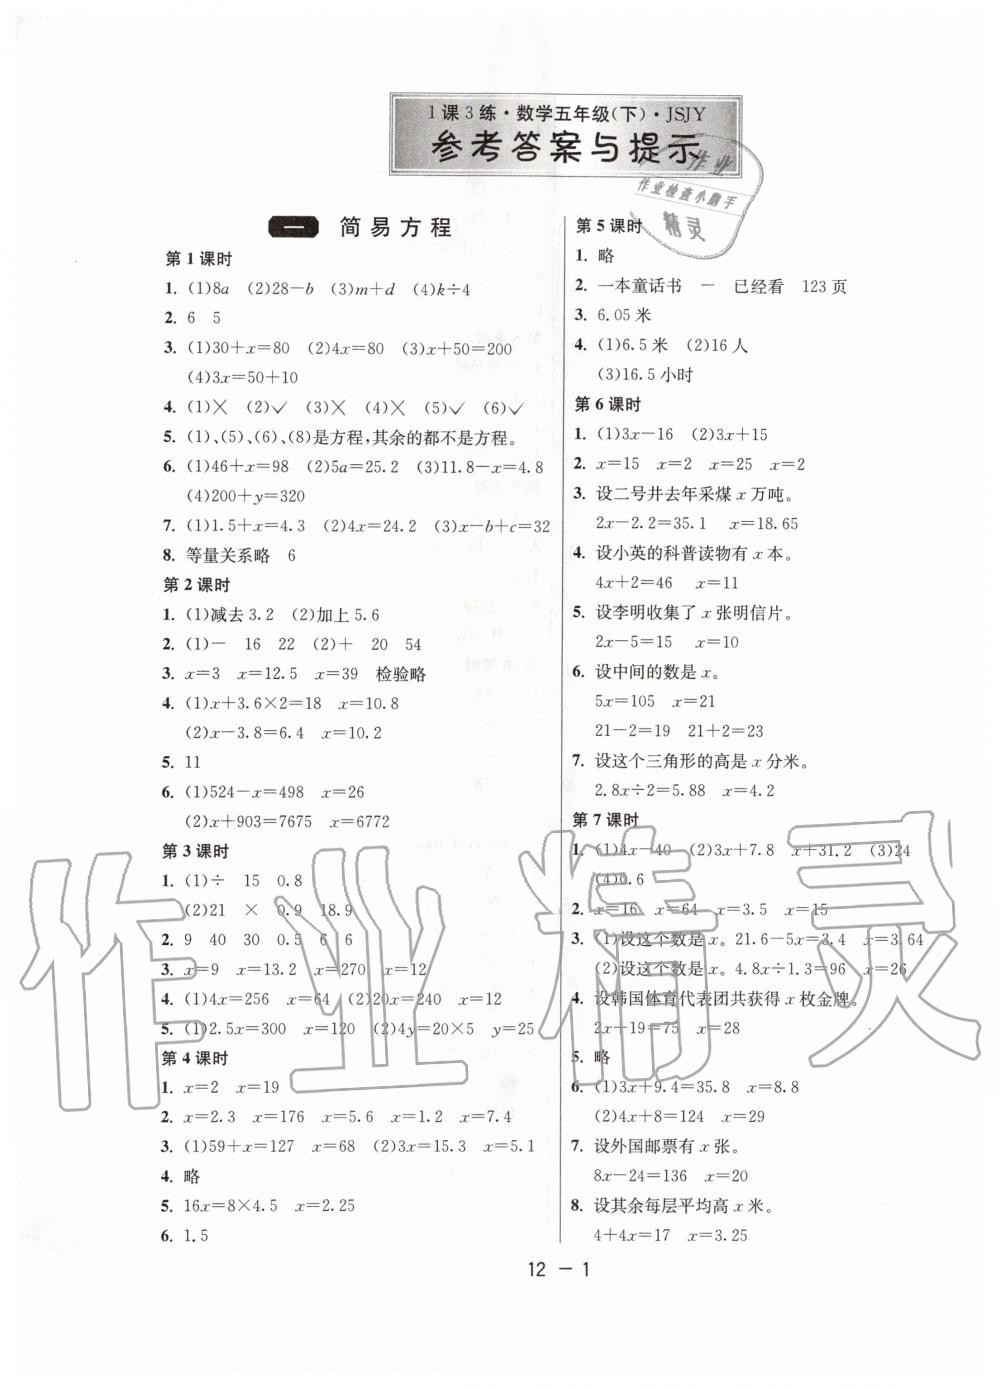 1课3练·数学五年级(下)·JSJY
参考答案与提示
作业
作业检查小助手
精灵
一 简易方程
第1课时
1. (1)8a (2)28−b (3)m+d (4)k÷4
2. 6 5
3. (1)30+x=80 (2)4x=80 (3)x+50=200
(4)3x=50+10
4. (1)× (2)✓ (3)× (4)× (5)✓ (6)✓
5. (1)、(5)、(6)、(8)是方程,其余的都不是方程。
6. (1)46+x=98 (2)5a=25.2 (3)11.8−x=4.8
(4)200+y=320
7. (1)1.5+x=4.3 (2)4x=24.2 (3)x−b+c=32
8. 等量关系略 6
第2课时
1. (1)减去3.2 (2)加上5.6
2. (1)− 16 22 (2)+ 20 54
3. x=3 x=12.5 x=39 检验略
4. (1)x+3.6×2=18 x=10.8
(2)x−3.8=6.4 x=10.2
5. 11
6. (1)524−x=498 x=26
(2)x+903=7675 x=6772
第3课时
1. (1)÷ 15 0.8
(2)21 × 0.9 18.9
2. 9 40 30 0.5 6 6
3. x=9 x=13.2 x=270 x=12
4. (1)4x=256 x=64 (2)20x=240 x=12
5. (1)2.5x=300 x=120 (2)4y=20×5 y=25
第4课时
1. x=2 x=19
2. x=2.3 x=176 x=5.6 x=1.2 x=7.4
3. (1)59+x=127 x=68 (2)3x=15.3 x=5.1
4. 略
5. 16x=8×4.5 x=2.25
6. 1.5
第5课时
1. 略
2. 一本童话书 − 已经看 123页
3. 6.05米
4. (1)6.5米 (2)16人
(3)16.5小时
第6课时
1. (1)3x−16 (2)3x+15
2. x=15 x=2 x=25 x=2
3. 设二号井去年采煤x万吨。
2x−2.2=35.1 x=18.65
4. 设小英的科普读物有x本。
4x+2=46 x=11
5. 设李明收集了x张明信片。
2x−5=15 x=10
6. 设中间的数是x。
5x=105 x=21
21−2=19 21+2=23
7. 设这个三角形的高是x分米。
2.8x÷2=5.88 x=4.2
第7课时
1. (1)4x−40 (2)3x+7.8 x+31.2 (3)24
(4)0.6
2. x=16 x=64 x=3.5 x=15
3. (1)设这个数是x。21.6−5x=3.4 x=3.64
(2)设这个数是x。4.8x÷1.3=96 x=26
4. 设韩国体育代表团共获得x枚金牌。
2x+19=75 x=28
5. 略
6. (1)3x+9.4=35.8 x=8.8
(2)4x+8=124 x=29
7. 设外国邮票有x张。
8x−24=136 x=20
8. 设其余每层平均高x米。
4+4x=17 x=3.25
12 − 1
作业精灵